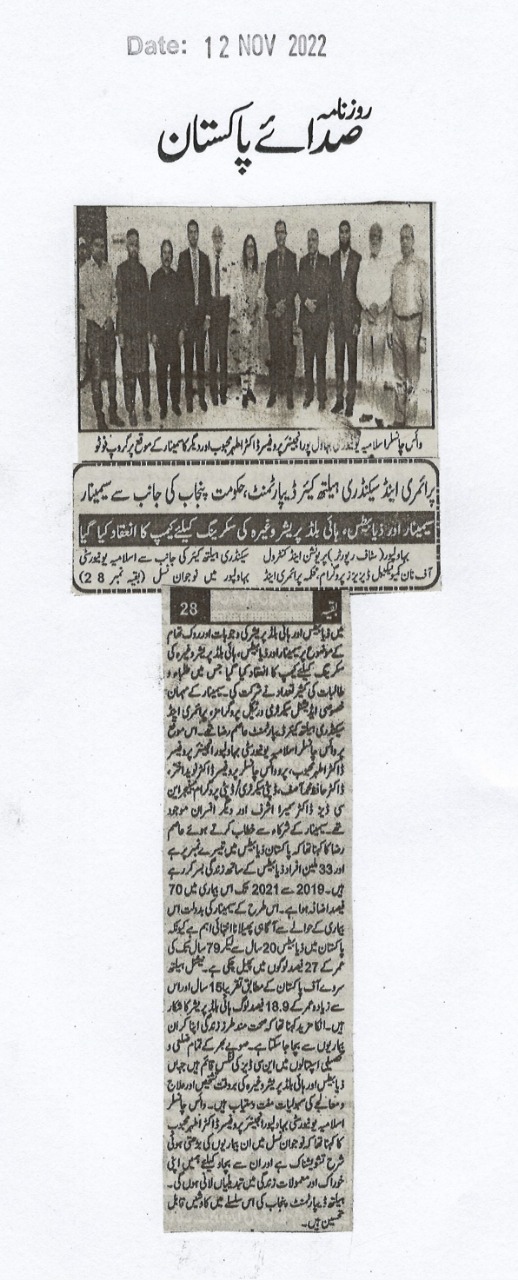 Date: 12 NOV 2022
روزنامہ
صدائے پاکستان
وائس چانسلر اسلامیہ یونیورسٹی بہاولپور انجینئر پروفیسر ڈاکٹر اطہر محبوب اور دیگر کا سیمینار کے موقع پر گروپ فوٹو
پرائمری اینڈ سیکنڈری ہیلتھ کیئر ڈیپارٹمنٹ، حکومت پنجاب کی جانب سے سیمینار
سیمینار اور ذیابیطس، ہائی بلڈ پریشر وغیرہ کی سکریننگ کیلئے کیمپ کا انعقاد کیا گیا
بہاولپور (سٹاف رپورٹر) پریونشن اینڈ کنٹرول
آف نان کمیونیکیبل ڈیزیز پروگرام، محکمہ پرائمری اینڈ
سیکنڈری ہیلتھ کیئر کی جانب سے اسلامیہ یونیورسٹی
بہاولپور میں نوجوان نسل (بقیہ نمبر 28)
بقیہ 28
میں ذیابیطس اور ہائی بلڈ پریشر کی وجوہات اور روک تھام
کے موضوع پر سیمینار اور ذیابیطس، ہائی بلڈ پریشر وغیرہ کی
سکریننگ کیلئے کیمپ کا انعقاد کیا گیا جس میں طلباء و
طالبات کی کثیر تعداد نے شرکت کی۔ سیمینار کے مہمان
خصوصی ایڈیشنل سیکرٹری ورٹیکل پروگرامز، پرائمری اینڈ
سیکنڈری ہیلتھ کیئر ڈیپارٹمنٹ عاصم رضا تھے۔ اس موقع
پر وائس چانسلر اسلامیہ یونیورسٹی بہاولپور انجینئر پروفیسر
ڈاکٹر اطہر محبوب، پرو وائس چانسلر پروفیسر ڈاکٹر نوید اختر،
ڈاکٹر حافظ محمد آصف، ڈپٹی سیکرٹری/ڈپٹی پروگرام منیجر این
سی ڈیز ڈاکٹر سمیرا اشرف اور دیگر افسران موجود
تھے۔ سیمینار کے شرکاء سے خطاب کرتے ہوئے عاصم
رضا کا کہنا تھا کہ پاکستان ذیابیطس میں تیسرے نمبر پر ہے
اور 33 ملین افراد ذیابیطس کے ساتھ زندگی بسر کر رہے
ہیں۔ 2019 سے 2021 تک اس بیماری میں 70
فیصد اضافہ ہوا ہے۔ اس طرح کے سیمینار کی بدولت اس
بیماری کے حوالے سے آگاہی پھیلانا انتہائی اہم ہے کیونکہ
پاکستان میں ذیابیطس 20 سال سے لیکر 79 سال تک کی
عمر کے 27 فیصد لوگوں میں پھیل چکی ہے۔ نیشنل ہیلتھ
سروے آف پاکستان کے مطابق تقریباً 15 سال اور اس
سے زیادہ عمر کے 18.9 فیصد لوگ ہائی بلڈ پریشر کا شکار
ہیں۔ انکا مزید کہنا تھا کہ صحت مند طرز زندگی اپنا کر ان
بیماریوں سے بچا جا سکتا ہے۔ صوبے بھر کے تمام ضلعی و
تحصیلی اسپتالوں میں این سی ڈیز کلینکس قائم ہیں جہاں
ذیابیطس اور ہائی بلڈ پریشر وغیرہ کی بروقت تشخیص اور علاج
و معالجے کی سہولیات مفت دستیاب ہیں۔ وائس چانسلر
اسلامیہ یونیورسٹی بہاولپور انجینئر پروفیسر ڈاکٹر اطہر محبوب
کا کہنا تھا کہ نوجوان نسل میں ان بیماریوں کی بڑھتی ہوئی
شرح تشویشناک ہے اور ان سے بچاؤ کیلئے ہمیں اپنی
خوراک اور معمولات زندگی میں تبدیلیاں لانی ہوں گی۔
ہیلتھ ڈیپارٹمنٹ پنجاب کی اس سلسلے میں کاوشیں قابل
تحسین ہیں۔